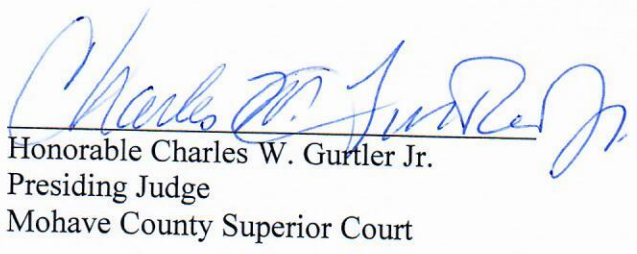 Charles W. Gurtler Jr.
Honorable Charles W. Gurtler Jr.
Presiding Judge
Mohave County Superior Court